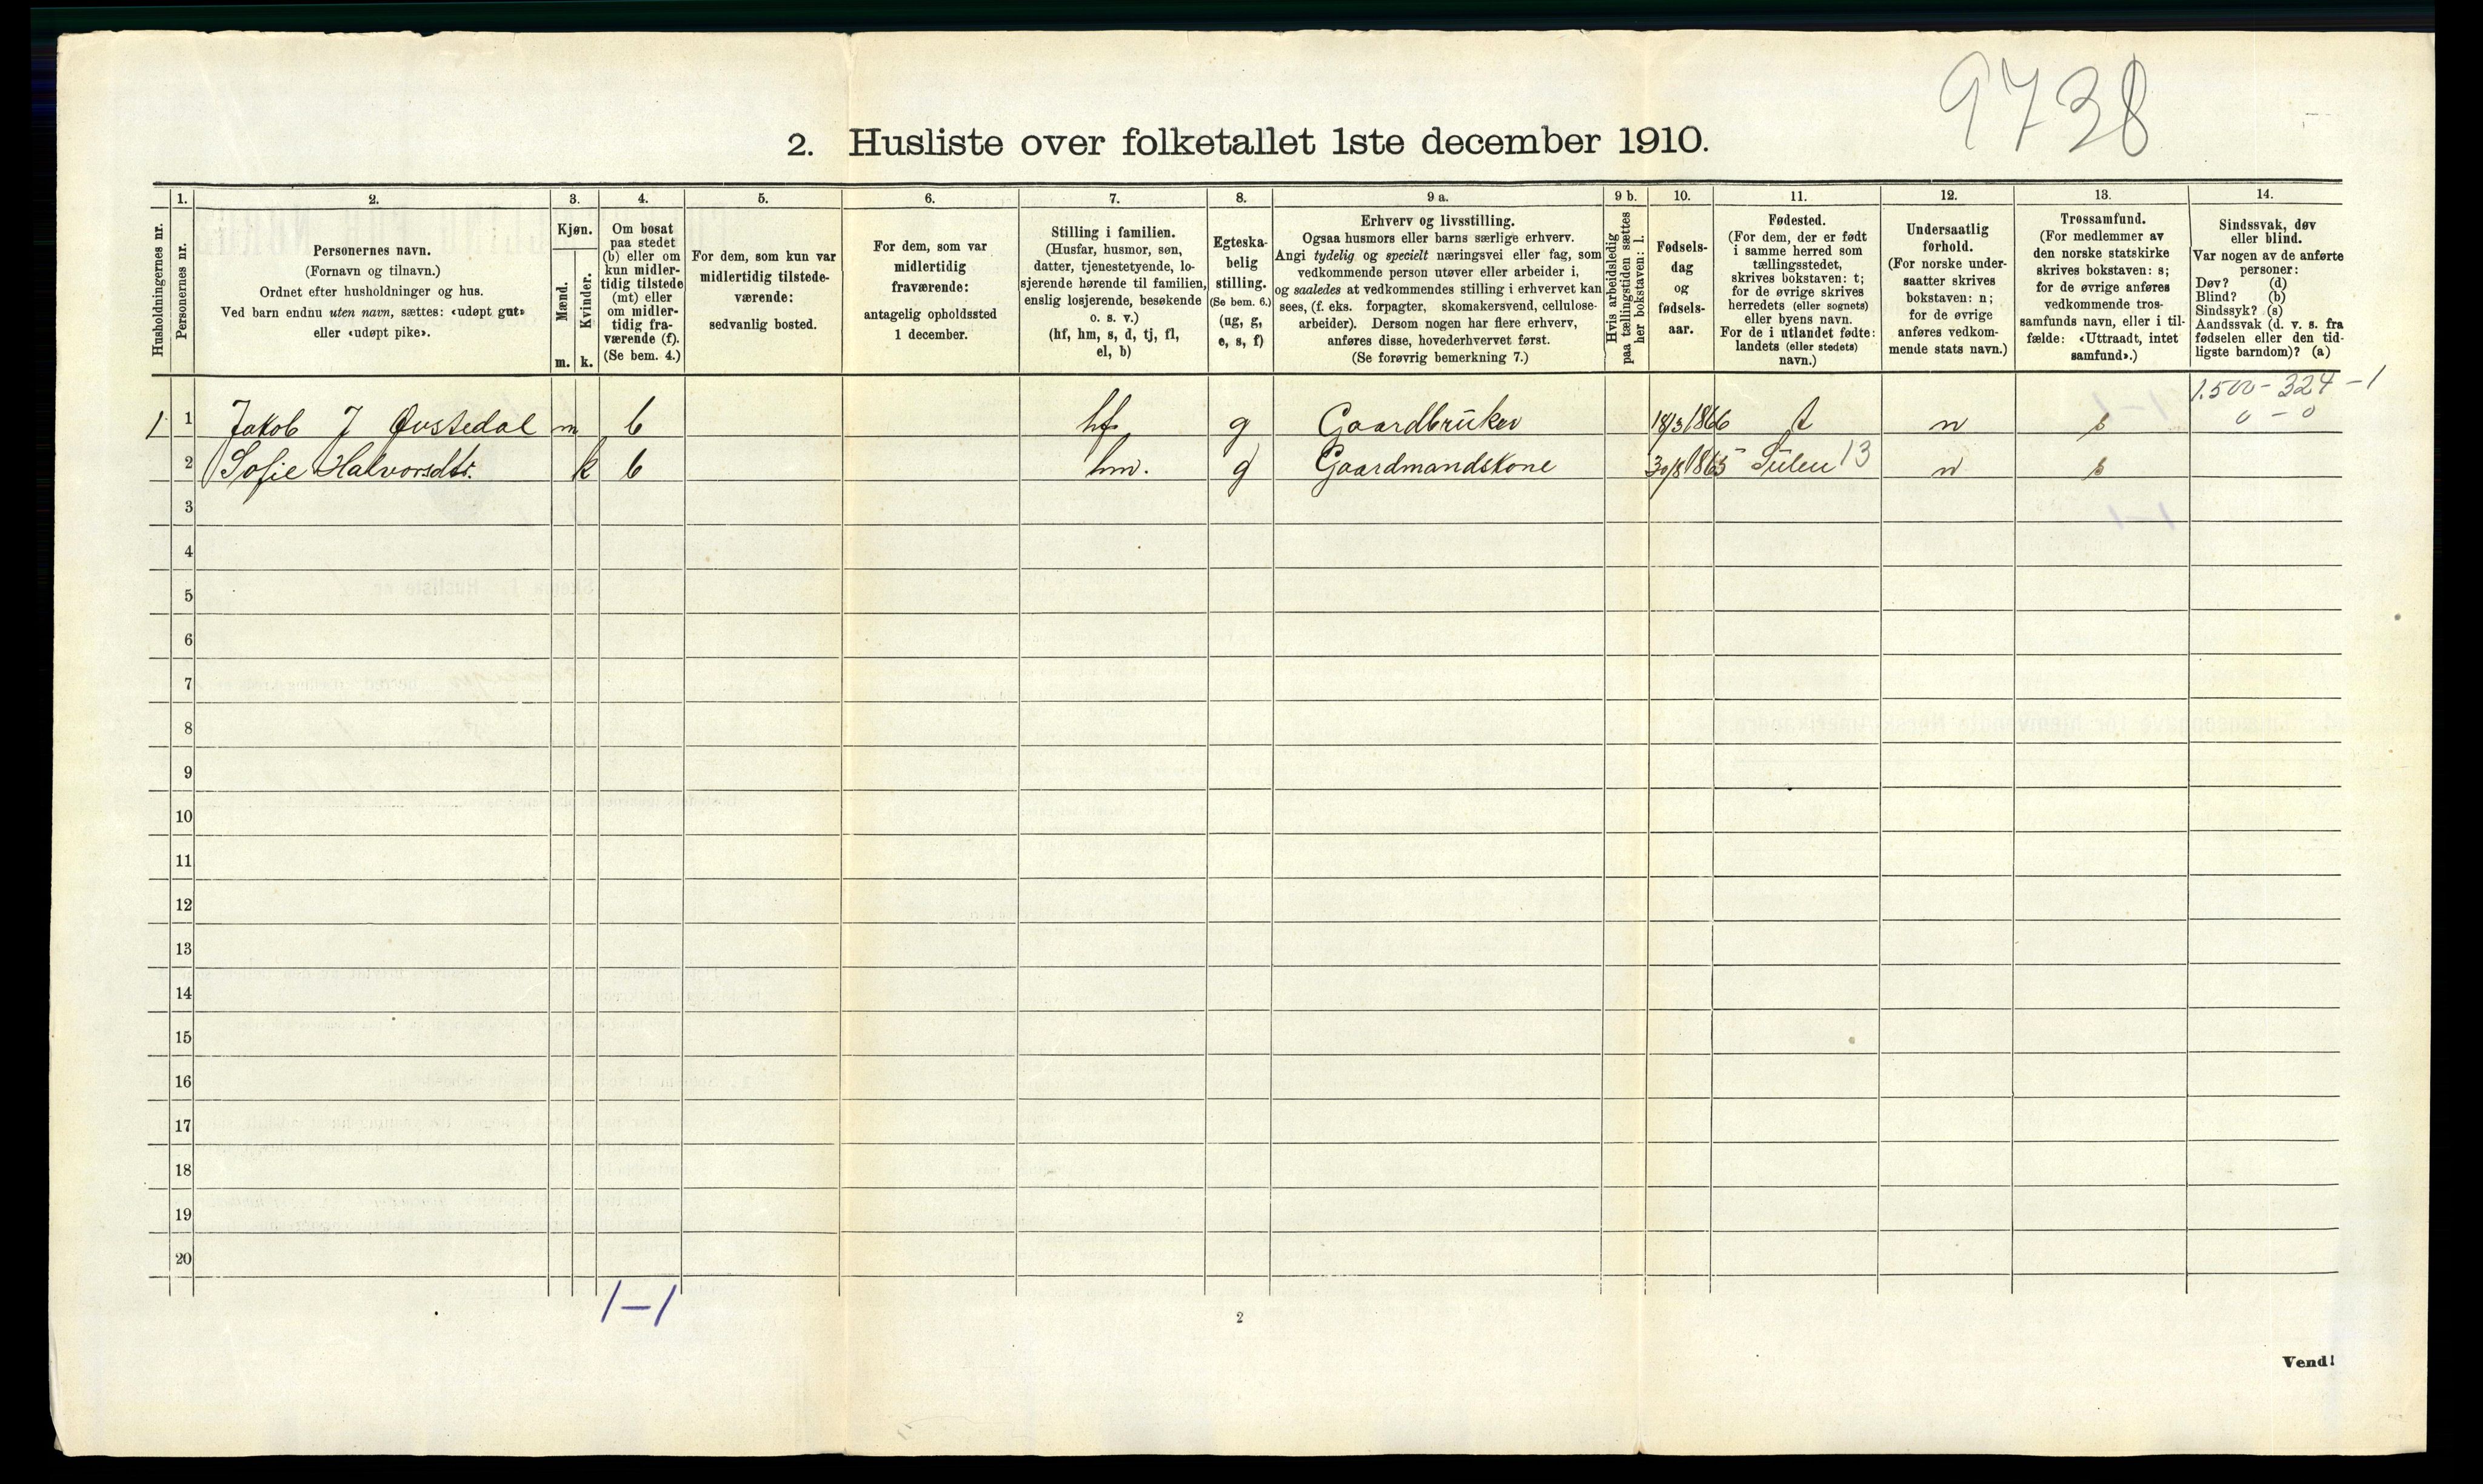 9738
2. Husliste over folketallet 1ste december 1910.
Husholdningernes nr.
1.
Personernes nr.
2.
Personernes navn.
(Fornavn og tilnavn.)
Ordnet efter husholdninger og hus.
Ved barn endnu uten navn, sættes: «udøpt gut»
eller «udøpt pike».
3.
Kjøn.
Mænd.
Kvinder.
m. k.
4.
Om bosat
paa stedet
(b) eller om
kun midler-
tidig tilstede
(mt) eller
om midler-
tidig fra-
værende (f).
(Se bem. 4.)
5.
For dem, som kun var
midlertidig tilstede-
værende:
sedvanlig bosted.
6.
For dem, som var
midlertidig
fraværende:
antagelig opholdssted
1 december.
7.
Stilling i familien.
(Husfar, husmor, søn,
datter, tjenestetyende, lo-
sjerende hørende til familien,
enslig losjerende, besøkende
o. s. v.)
(hf, hm, s, d, tj, fl,
el, b)
8.
Egteska-
belig
stilling.
(Se bem. 6.)
(ug, g,
e, s, f)
9 a.
Erhverv og livsstilling.
Ogsaa husmors eller barns særlige erhverv.
Angi tydelig og specielt næringsvei eller fag, som
vedkommende person utøver eller arbeider i,
og saaledes at vedkommendes stilling i erhvervet kan
sees, (f. eks. forpagter, skomakersvend, cellulose-
arbeider). Dersom nogen har flere erhverv,
anføres disse, hovederhvervet først.
(Se forøvrig bemerkning 7.)
9 b.
Hvis arbeidsledig
paa tællingstiden sættes
her bokstaven: l.
10.
Fødsels-
dag
og
fødsels-
aar.
11.
Fødested.
(For dem, der er født
i samme herred som
tællingsstedet,
skrives bokstaven: t;
for de øvrige skrives
herredets (eller sognets)
eller byens navn.
For de i utlandet fødte:
landets (eller stedets)
navn.)
12.
Undersaatlig
forhold.
(For norske under-
saatter skrives
bokstaven: n;
for de øvrige
anføres vedkom-
mende stats navn.)
13.
Trossamfund.
(For medlemmer av
den norske statskirke
skrives bokstaven: s;
for de øvrige anføres
vedkommende tros-
samfunds navn, eller i til-
fælde: «Uttraadt, intet
samfund».)
14.
Sindssvak, døv
eller blind.
Var nogen av de anførte
personer:
Døv? (d)
Blind? (b)
Sindssyk? (s)
Aandssvak (d. v. s. fra
fødselen eller den tid-
ligste barndom)? (a)
1.500 - 324 - 1
0 - 0
1 1 Jakob J Øvstedal m b hf g Gaardbruker 18/3 1866 t n s
2 Sofie Halvorsdtr. k b hm. g Gaardmandskone 30/8 1865 Sulen 13 n s
3
4
5
6
7
8
9
10
11
12
13
14
15
16
17
18
19
20
1-1
2
Vend!